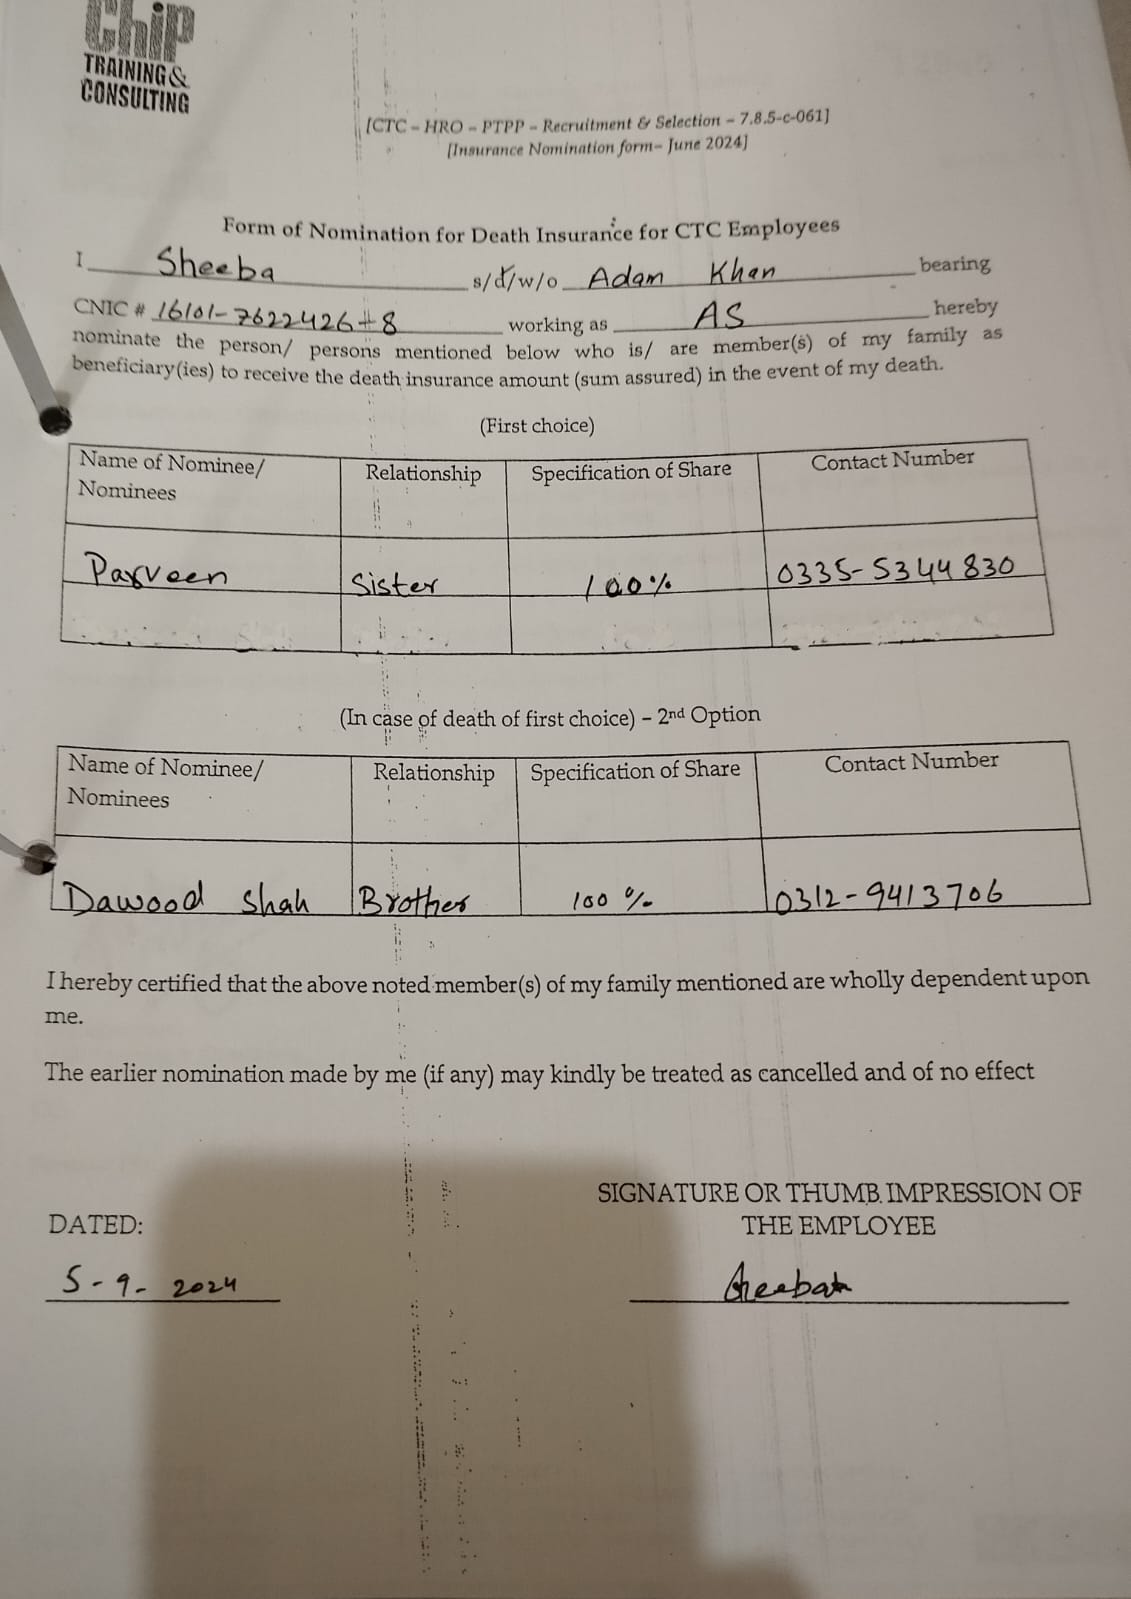 Chip
TRAINING &
CONSULTING
[CTC – HRO – PTPP – Recruitment & Selection – 7.8.5-c-061]
[Insurance Nomination form– June 2024]
Form of Nomination for Death Insurance for CTC Employees
I Sheeba s/d/w/o Adam Khan bearing
CNIC # 16101-7622426-8 working as AS hereby
nominate the person/ persons mentioned below who is/ are member(s) of my family as
beneficiary(ies) to receive the death insurance amount (sum assured) in the event of my death.
(First choice)
Name of Nominee/ Relationship Specification of Share Contact Number
Nominees
Parveen Sister 100% 0335-5344830
(In case of death of first choice) – 2nd Option
Name of Nominee/ Relationship Specification of Share Contact Number
Nominees
Dawood Shah Brother 100 % 0312-9413706
I hereby certified that the above noted member(s) of my family mentioned are wholly dependent upon
me.
The earlier nomination made by me (if any) may kindly be treated as cancelled and of no effect
SIGNATURE OR THUMB IMPRESSION OF
DATED: THE EMPLOYEE
5-9-2024 Sheebah